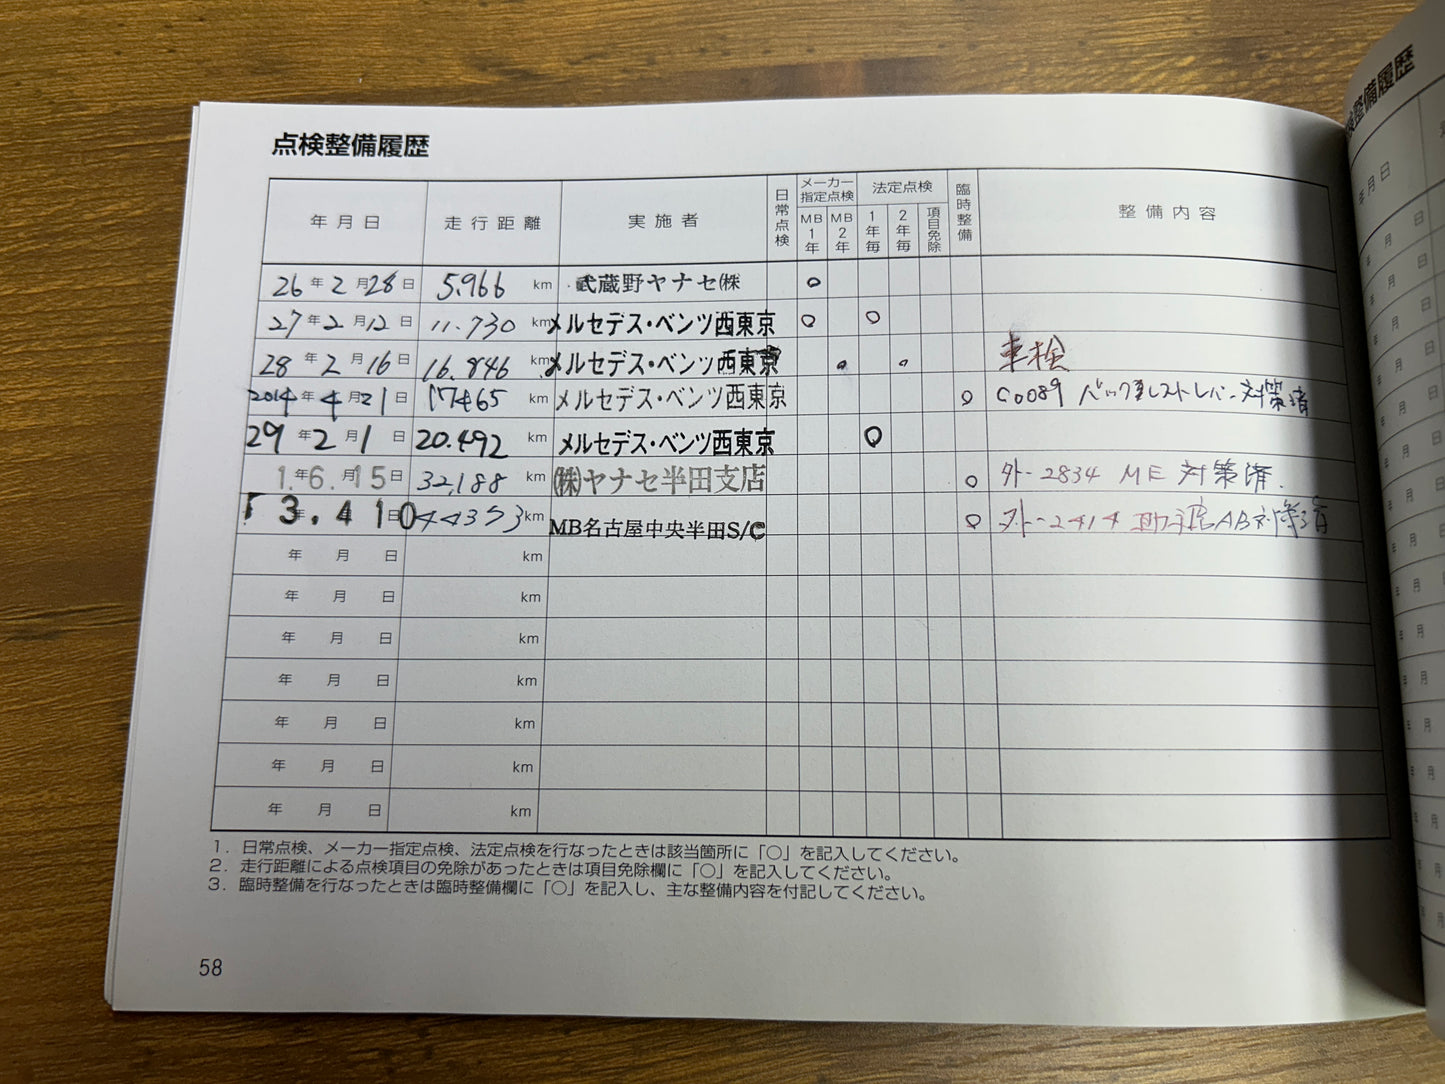 点検整備履歴
年月日 走行距離 実施者 日常点検 メーカー指定点検 MB1年 MB2年 法定点検 1年毎 2年毎 項目免除 臨時整備 整備内容
26年2月28日 5,966 km 武蔵野ヤナセ㈱ ○
27年2月12日 11.730 km メルセデス・ベンツ西東京 ○ ○
28年2月16日 16.846 km メルセデス・ベンツ西東京 ○ ○ 車検
2014年4月21日 17465 km メルセデス・ベンツ西東京 ○ C0089 対策済
29年2月1日 20.492 km メルセデス・ベンツ西東京 ○
1.年6.月15日 32,188 km ㈱ヤナセ半田支店 ○ 外-2834 ME 対策済.
3.410 44373 km MB名古屋中央半田S/C ○ 外-2414 助手席AB対策済
年 月 日 km
年 月 日 km
年 月 日 km
年 月 日 km
年 月 日 km
年 月 日 km
年 月 日 km
1. 日常点検、メーカー指定点検、法定点検を行なったときは該当箇所に「○」を記入してください。
2. 走行距離による点検項目の免除があったときは項目免除欄に「○」を記入してください。
3. 臨時整備を行なったときは臨時整備欄に「○」を記入し、主な整備内容を付記してください。
58